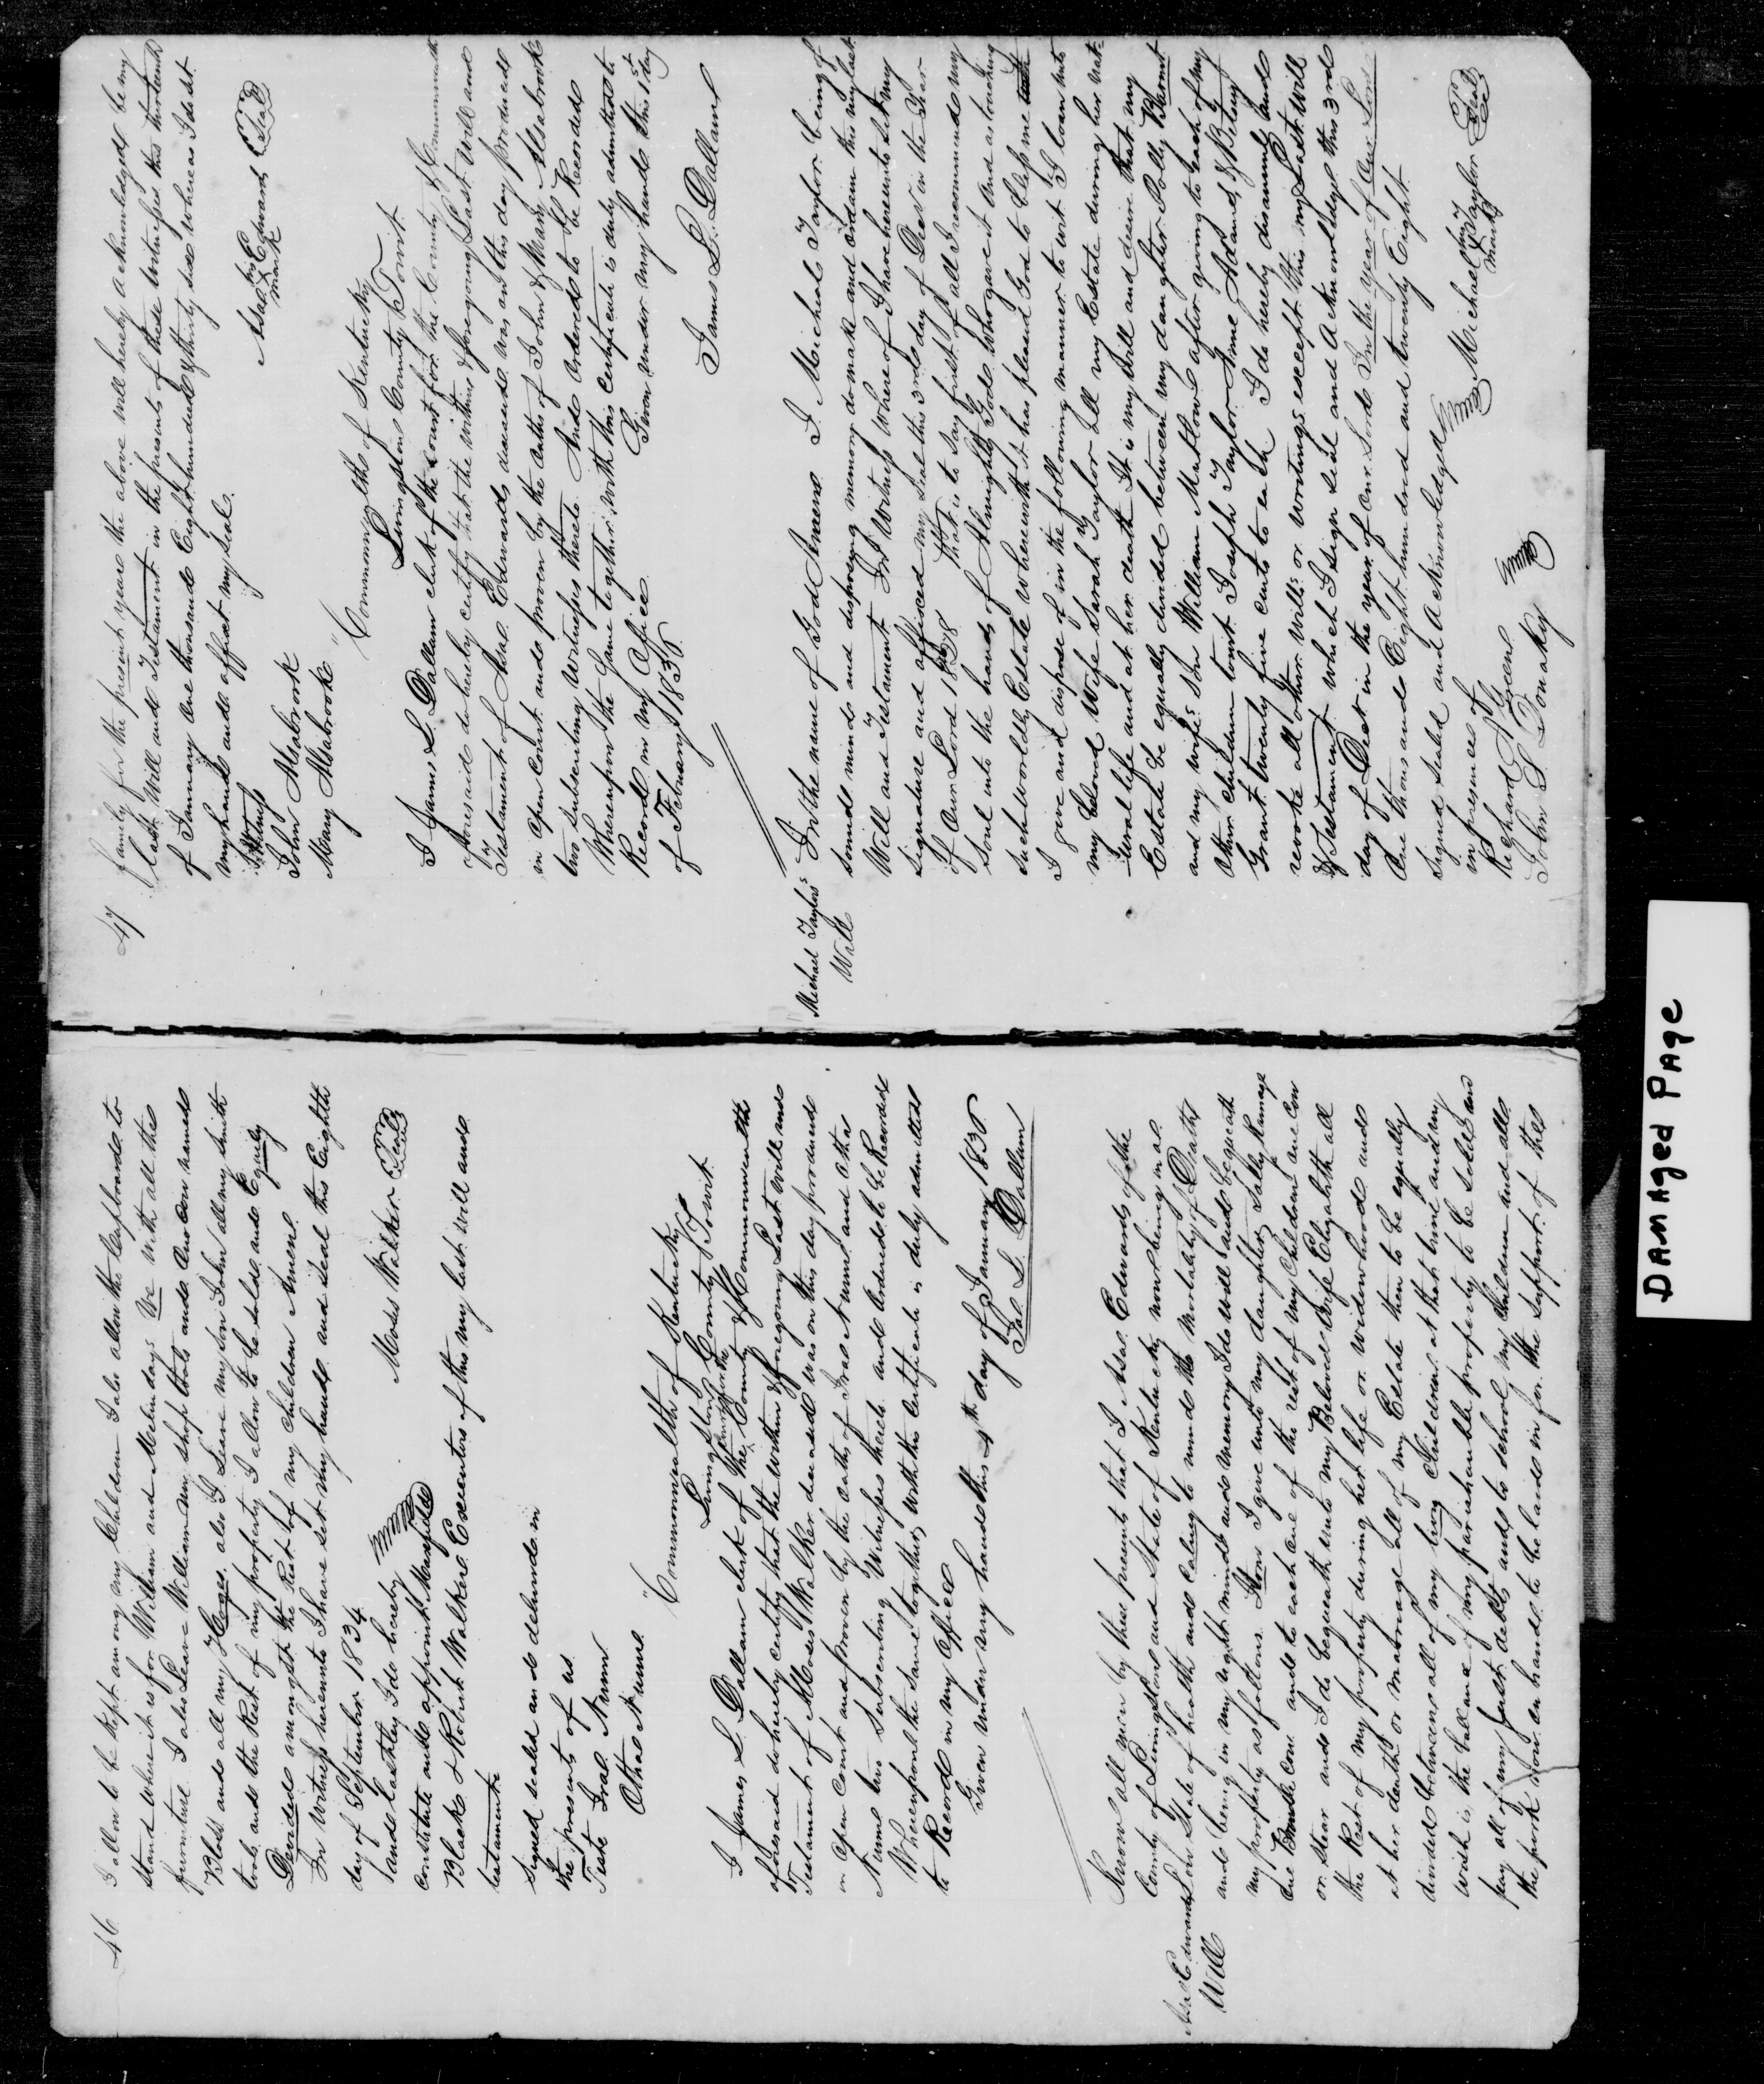 46
I allow to be kept among my Children I also allow the Cupboard to
stand where it is for William and Melinda. We with all the
furniture I also Leave William my Shop tools and One Cow named
Bloss and all my Hogs. also I Leave my Son John all my Smith
tools and the Rest of my property I allow to be sold and Equely
Devided amongst the Rest of my children Amen
In witness hereunto I have set my hand and seal this Eighth
day of September 1834
and Lastley I do hereby Moses Walker Seal
constitute and appoint
Black & Robert Walker Executors of this my last will and
testament
Signed sealed and delivered in
the presents of us
Test Iral Nunn
Otha Nunn
"Commonwealth of Kentucky
Livingston County Towit
I James L. Dallam clerk of the County & Commonwealth
court for the
aforesaid do hereby certify that the within & foregoing Last will and
Testament of Moses Walker deceased was on this day produced
in open court and proven by the oaths of Iral Nunn and Otha
Nunn two Subscribing Witnesses thereto and Ordered to be Recorded
Whereupon the same together with this certificate is duly admitted
to Record in my office
Given under my hand this 4th day of January 1836
Jas L Dallam
Asa Edwards
Will
Know all men by these presents that I Asa Edwards of the
County of Livingston and State of Kentucky now being in a
low State of health and caling to mind the Mortality of Death
and being in my right mind and memory I do will and bequeath
my property as follows. Item I give unto my daughter Sally Rumage
one cow and to each one of the rest of my Children one Cow
or Stear and I do bequeath unto my Beloved wife Elizabeth all
the Rest of my property during her life or widowhood and
at her death or marriage all of my Estate then to be equally
divided between all of my living Children at that time and my
wish is the ballance of my parishauble property to be sold and
pay all of my Just debts and to school my Children and all
the pork now on hand to be laid in for the Support of the
47
family for the present year the above will hereby acknowledged be my
last Will and Testament in the presents of these witnesses this thirteenth
of January One thousand Eight hundred & thirty six whereas I do set
my hand and affixt my seal.
Witness
John Alsabrook Asa his Edwards Seal
Mary Alsabrook mark
"Commonwealth of Kentucky
Livingston County Towit
I James L. Dallam clerk of the court for the County & Commonwealth
aforesaid do hereby certify that the within & foregoing Last Will and
Testament of Asa Edwards deceased was on this day produced
in open court and proven by the oaths of John & Mary Alsabrook
two subscribing Witnesses thereto. And Ordered to be Recorded
Whereupon the same together with this certificate is duly admitted to
Record in my office
Given under my hand this 1st day
of February 1836.
James L. Dallam
Michael Taylors
Will
In the name of God Amen I Micheal Taylor being of
sound mind and disposing memory do make and ordain this my last
Will and Testament In Witness Whereof I have hereunto set my
signature and affixed my seal this 3rd day of Decr in the year
of Our Lord 1828 that is to say first of all I recommend my
Soul into the hands of Almighty God who gave it and as touching
such worldly Estate wherewith it has pleased God to bless me
I give and dispose of in the following manner to wit I loan unto
my beloved Wife Sarah Taylor all my Estate during her nat-
ural life and at her death It is my will and desire that my
Estate be equally divided between my daughter Polly
and my wifes Son William Mattlow after giving to each of my
other children towit Joseph Taylor Anne Adams & Betsey
Grant twenty five cents to each I do hereby disannul and
revoke all other wills or writings except this my Last Will
& Testament which I sign seal and Acknowledge this 3rd
day of Decr in the year of our Lord In the year of Our Lord
One thousand Eight hundred and twenty Eight
Signed sealed and acknowledged
in presence of Michael his Taylor Seal
Richard Green mark
John S Donaky
DAMAGED PAGE